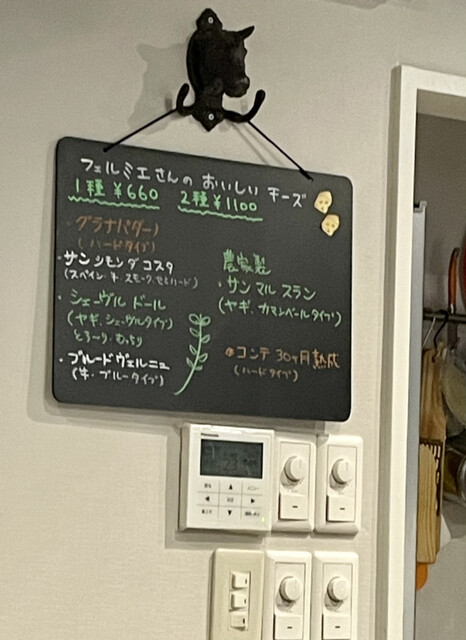 フェルミエさんの おいしい チーズ
1種 ¥660 2種 ¥1100
・グラナパダーノ
(ハードタイプ)
・サンシモンダコスタ
(スペイン・牛・スモーク、セミハード)
・シェーヴルドール
(ヤギ、シェーヴルタイプ)
とろ〜り・むっちり
・ブルードヴェルニュ
(牛・ブルータイプ)
農家製
・サンマルスラン
(ヤギ・カマンベールタイプ)
コンテ 30ヶ月熟成
(ハードタイプ)
Panasonic